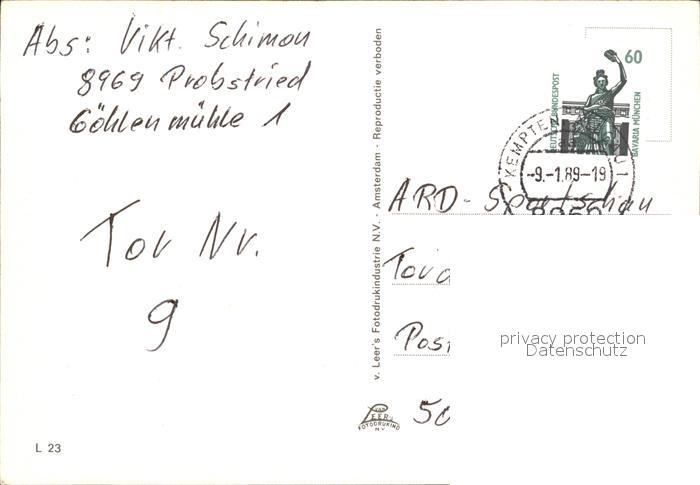 Abs: Vikt. Schimon
8969 Probstried
Göhlenmühle 1
Tor Nr.
9
L 23
v. Leer's Fotodrukindustrie N.V. - Amsterdam - Reproductie verboden
VAN
LEER's
FOTODRUKIND
N.V.
60
DEUTSCHE BUNDESPOST
BAVARIA MÜNCHEN
KEMPTEN
-9.-1.89-19
8960
ARD-Sportschau
Tord
Post
50
privacy protection
Datenschutz